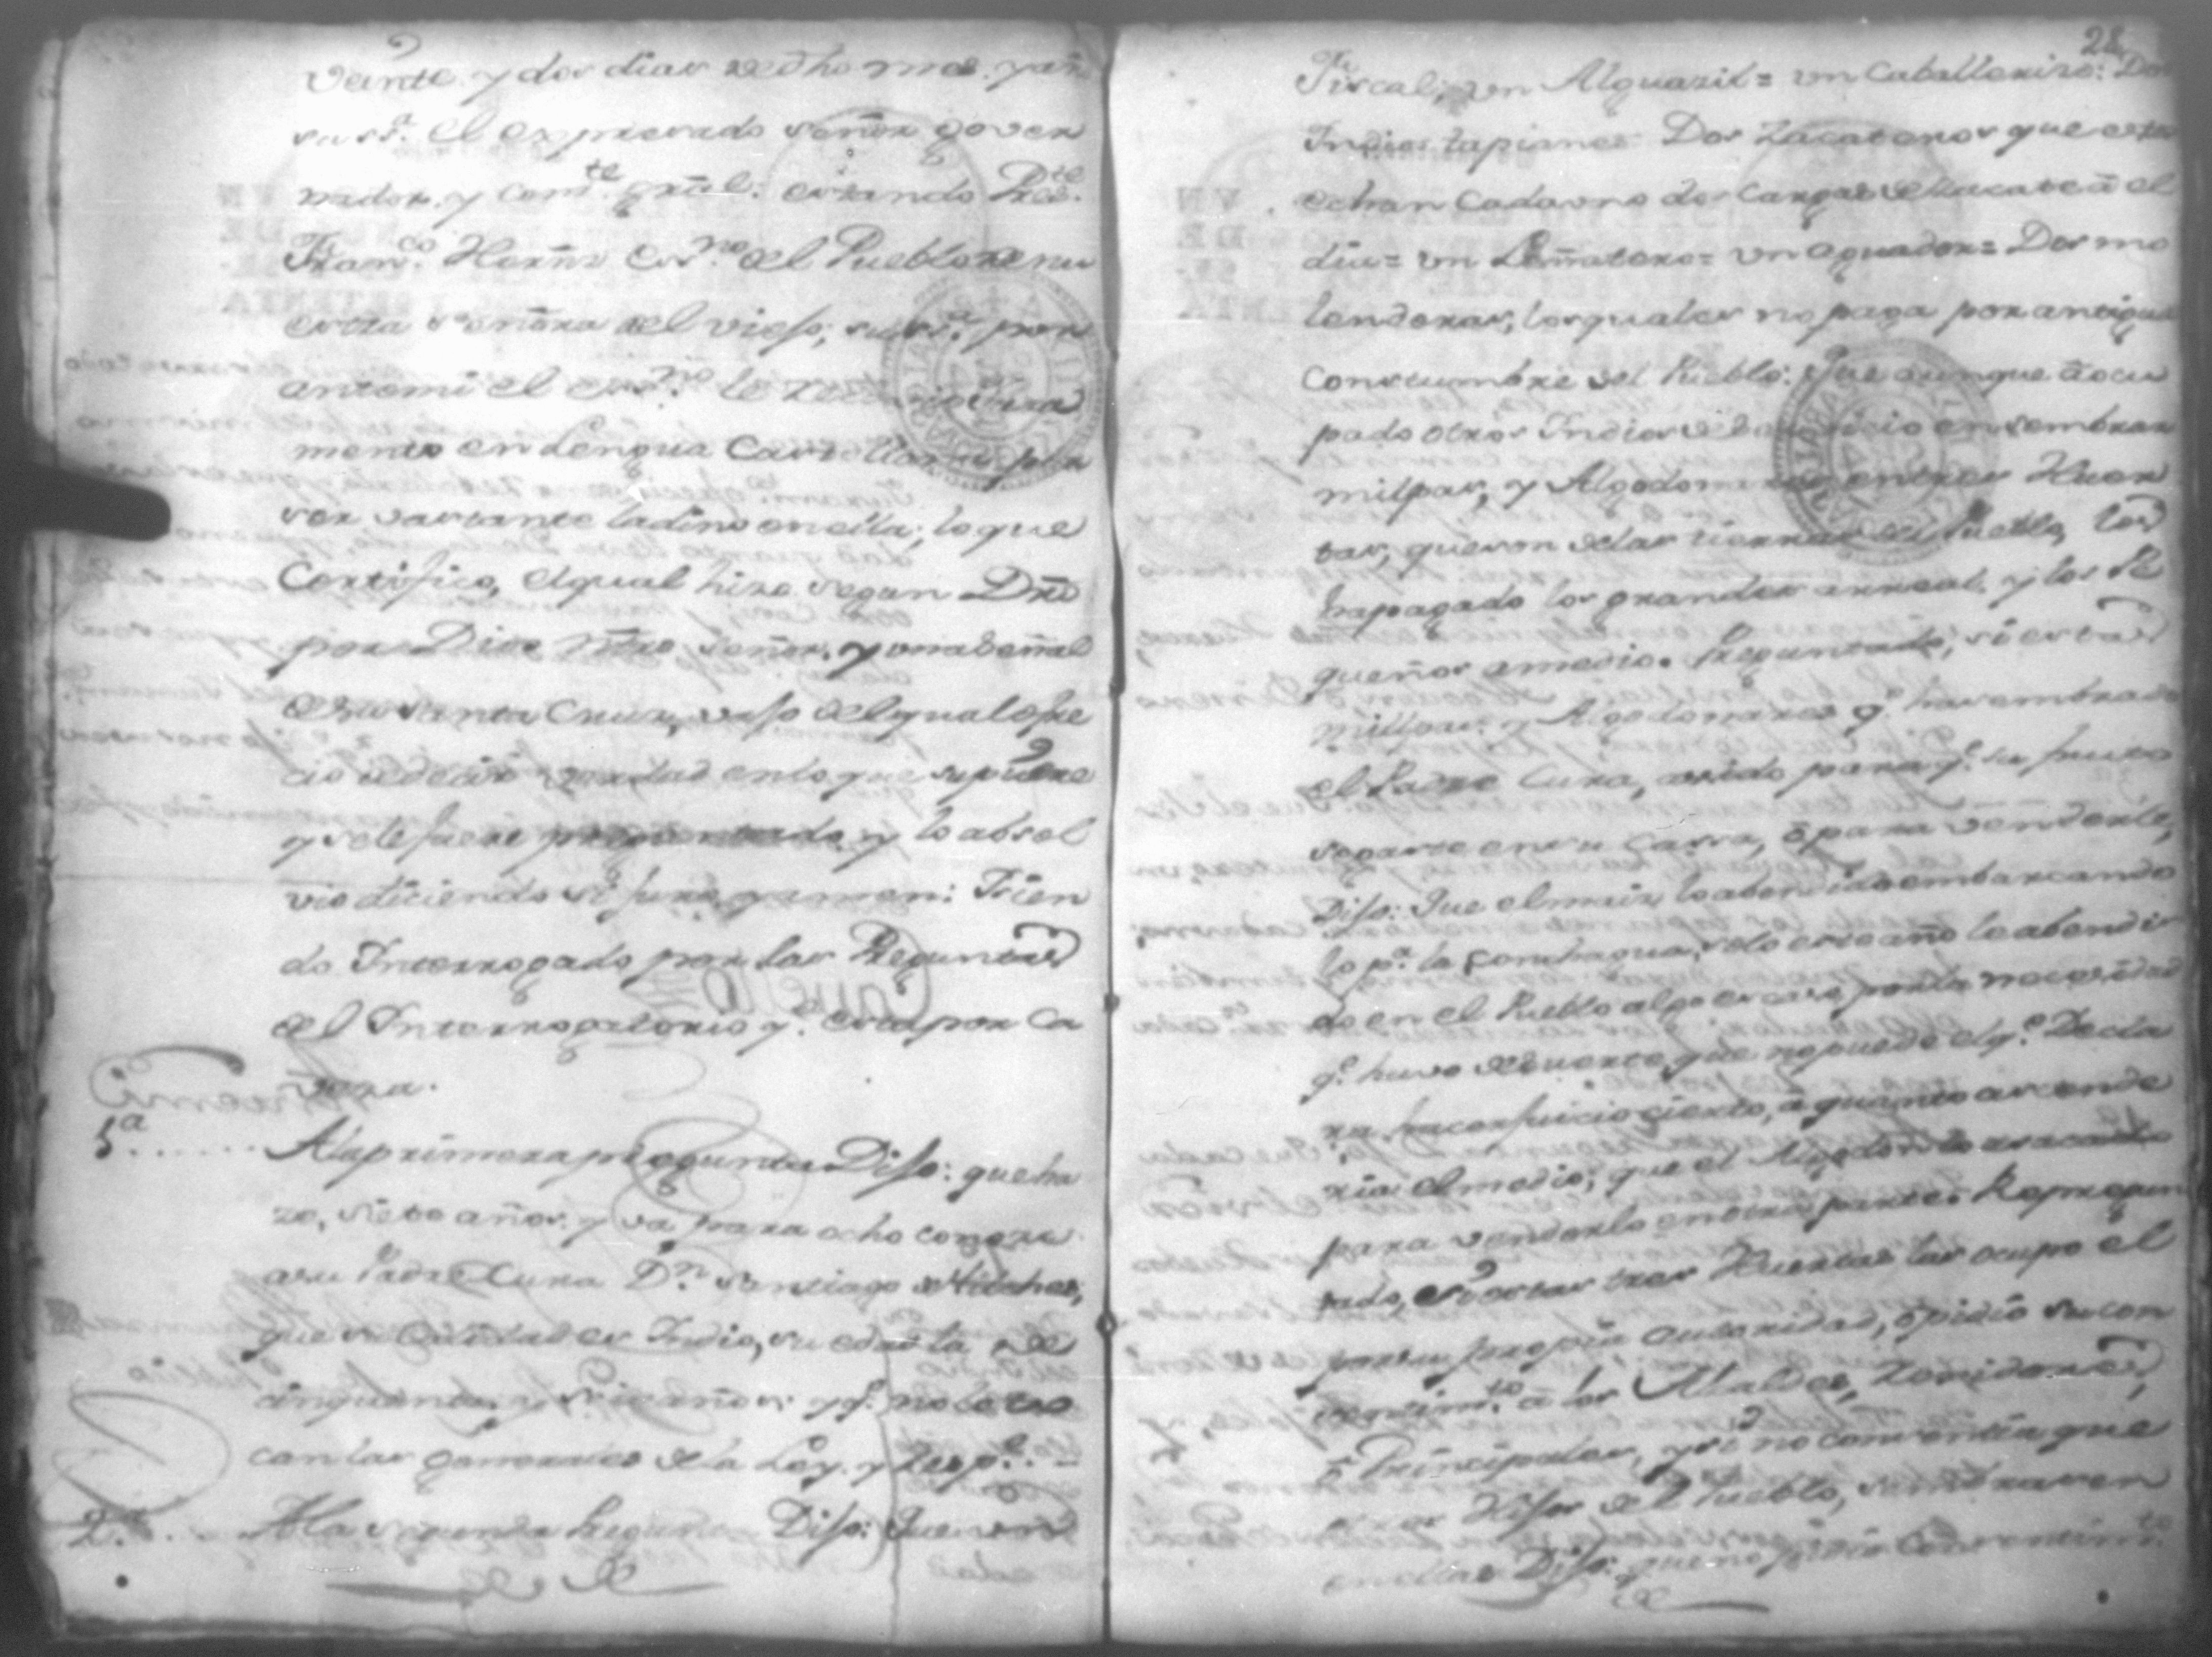 Veinte y dos dias de dho mes. y añ
su sª. el expresado señor gover
nador. y Comte. gral: estando Prete.
Franco. Herñz Essno. del Pueblo de nu
estra señora del viejo; su sª. por
antemi el essno. le
mento en Lengua Castellana por
ser vastante ladino en ella; lo que
Certifico, el qual hizo segun Dro
por Dios Ntro señor. y una señal
de su santa Cruz, vajo del qual ofre
cio de decir verdad en lo que supiere
y se le fuere preguntado y lo absol
vio diciendo si juro, y amen: Isien
do Interrogado por las Preguntas
del Interrogatorio q. esta por Ca
veza.
1ª...... Ala primera pregunta Dijo: que ha
ze, siete años. y va para ocho conoze
a su Padre Cura Dn. Santiago de Hilches,
que su Calidad es Indio, su edad la de
cinquenta y seis años: y q. no le to
can las generales de la Ley. y resp.
2ª... Ala segunda Pregunta Dijo: Que un
28
Fiscal; un Alguazil= un Caballerizo: Dos
Indios tapianes Dos Zacateros que estos
echan cada uno dos Cargas de Zacate ã el
dia= un Leñatero= un aguador= Dos mo
lenderas, los quales no paga por antigua
Constumbre del Pueblo: Que aunque ã ocu
pado otros Indios de servicio en sembrar
milpas, y Algodonares en tres Huer
tas, que son de las tierras del Pueblo, les
ha pagado los grandes a rreal. y los Pe
queños a medio. Preguntado, si estas
millpas. y Algodonares q. ha sembrado
el Padre Cura, asido para q. su fruto
se gaste en su Cassa, õ para venderle,
Dijo: Que el maiz lo abendido embarcando
lo pª. la Conchagua, solo este año lo abendi
do en el Pueblo algo escaso por la necesidad
q. huvo de suerte que no puede el q. Decla
ra hacer juicio cierto, ã quanto ascende
ria el medio; que el Algodon lo
para venderlo en otra parte. Repregun
tado, si estas tres Huertas las ocupo el
por su propia autoridad, õ pidio su con
sentimto. ã los Alcaldes, Rexidores,
õ Principales, y si no consentia que
otros Hijos del Pueblo, sembrasen
en ellas Dijo: que no pidio Consentimto.